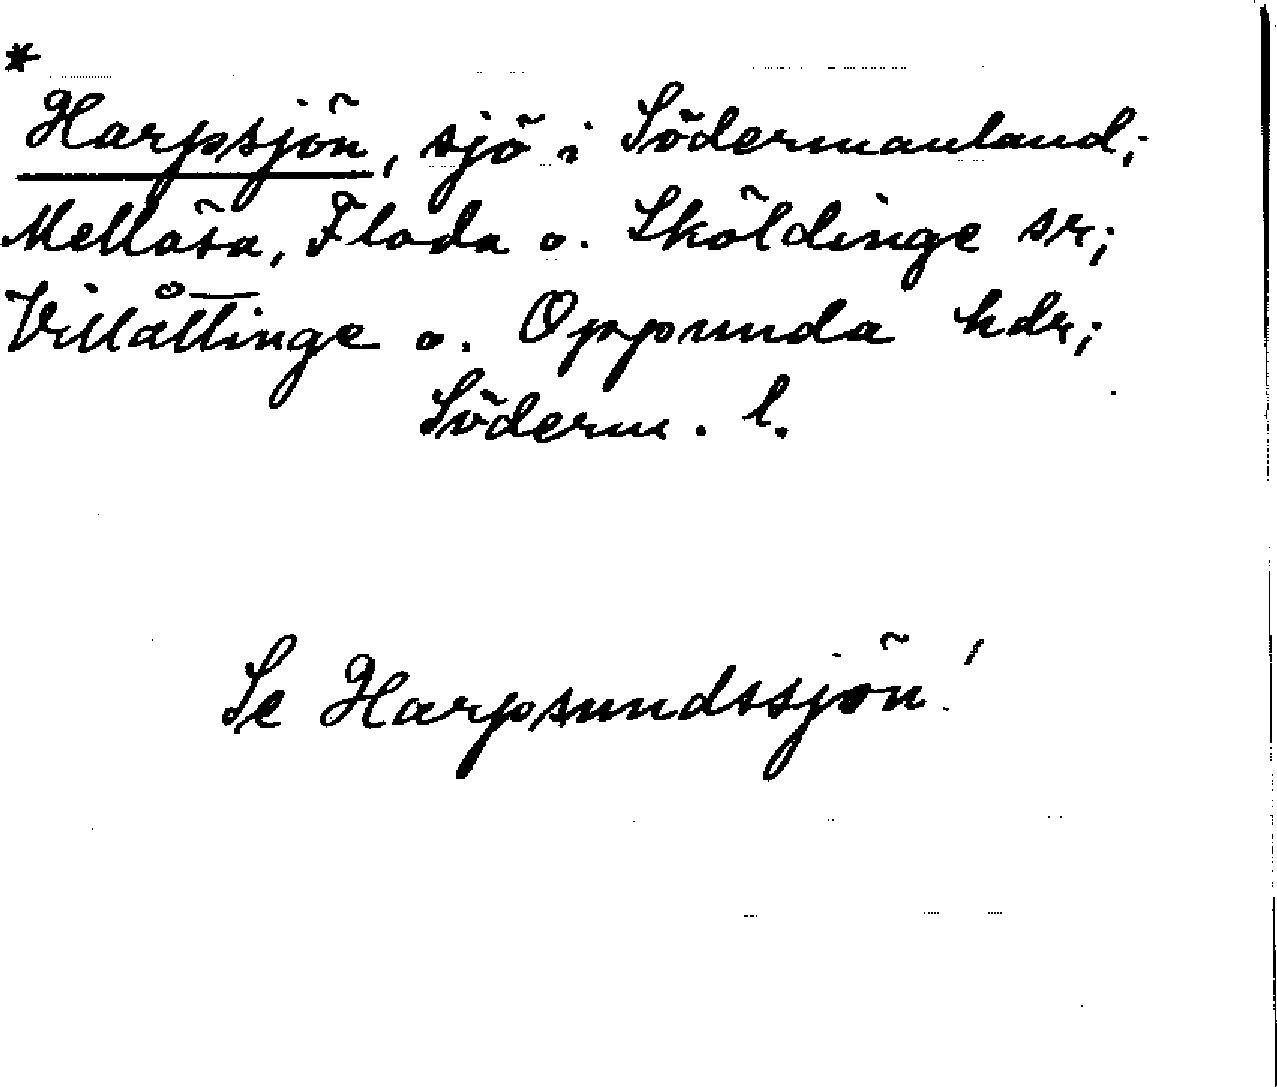 *
Harpsjön, sjö i Södermanland;
Mellösa, Floda o. Sköldinge sr;
Villåttinge o. Oppunda hdr;
Söderm. l.
Se Harpsundssjön!